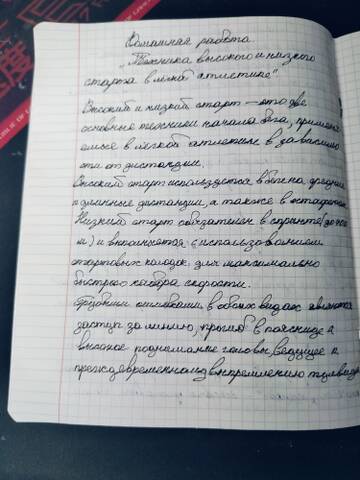 Домашняя работа
"Техника высокого и низкого
старта в лёгкой атлетике"
Высокий и низкий старт — это две
основные техники начала бега, применя
емые в лёгкой атлетике в зависимо
сти от дистанции.
Высокий старт используется в беге на средние
и длинные дистанции, а также в эстафетах.
Низкий старт обязателен в спринте (до 400
м) и выполняется с использованием
стартовых колодок для максимально
быстрого набора скорости.
Грубыми ошибками в обоих видах являются
заступ за линию, прогиб в пояснице и
высокое поднимание головы, ведущее к
преждевременному выпрямлению туловища